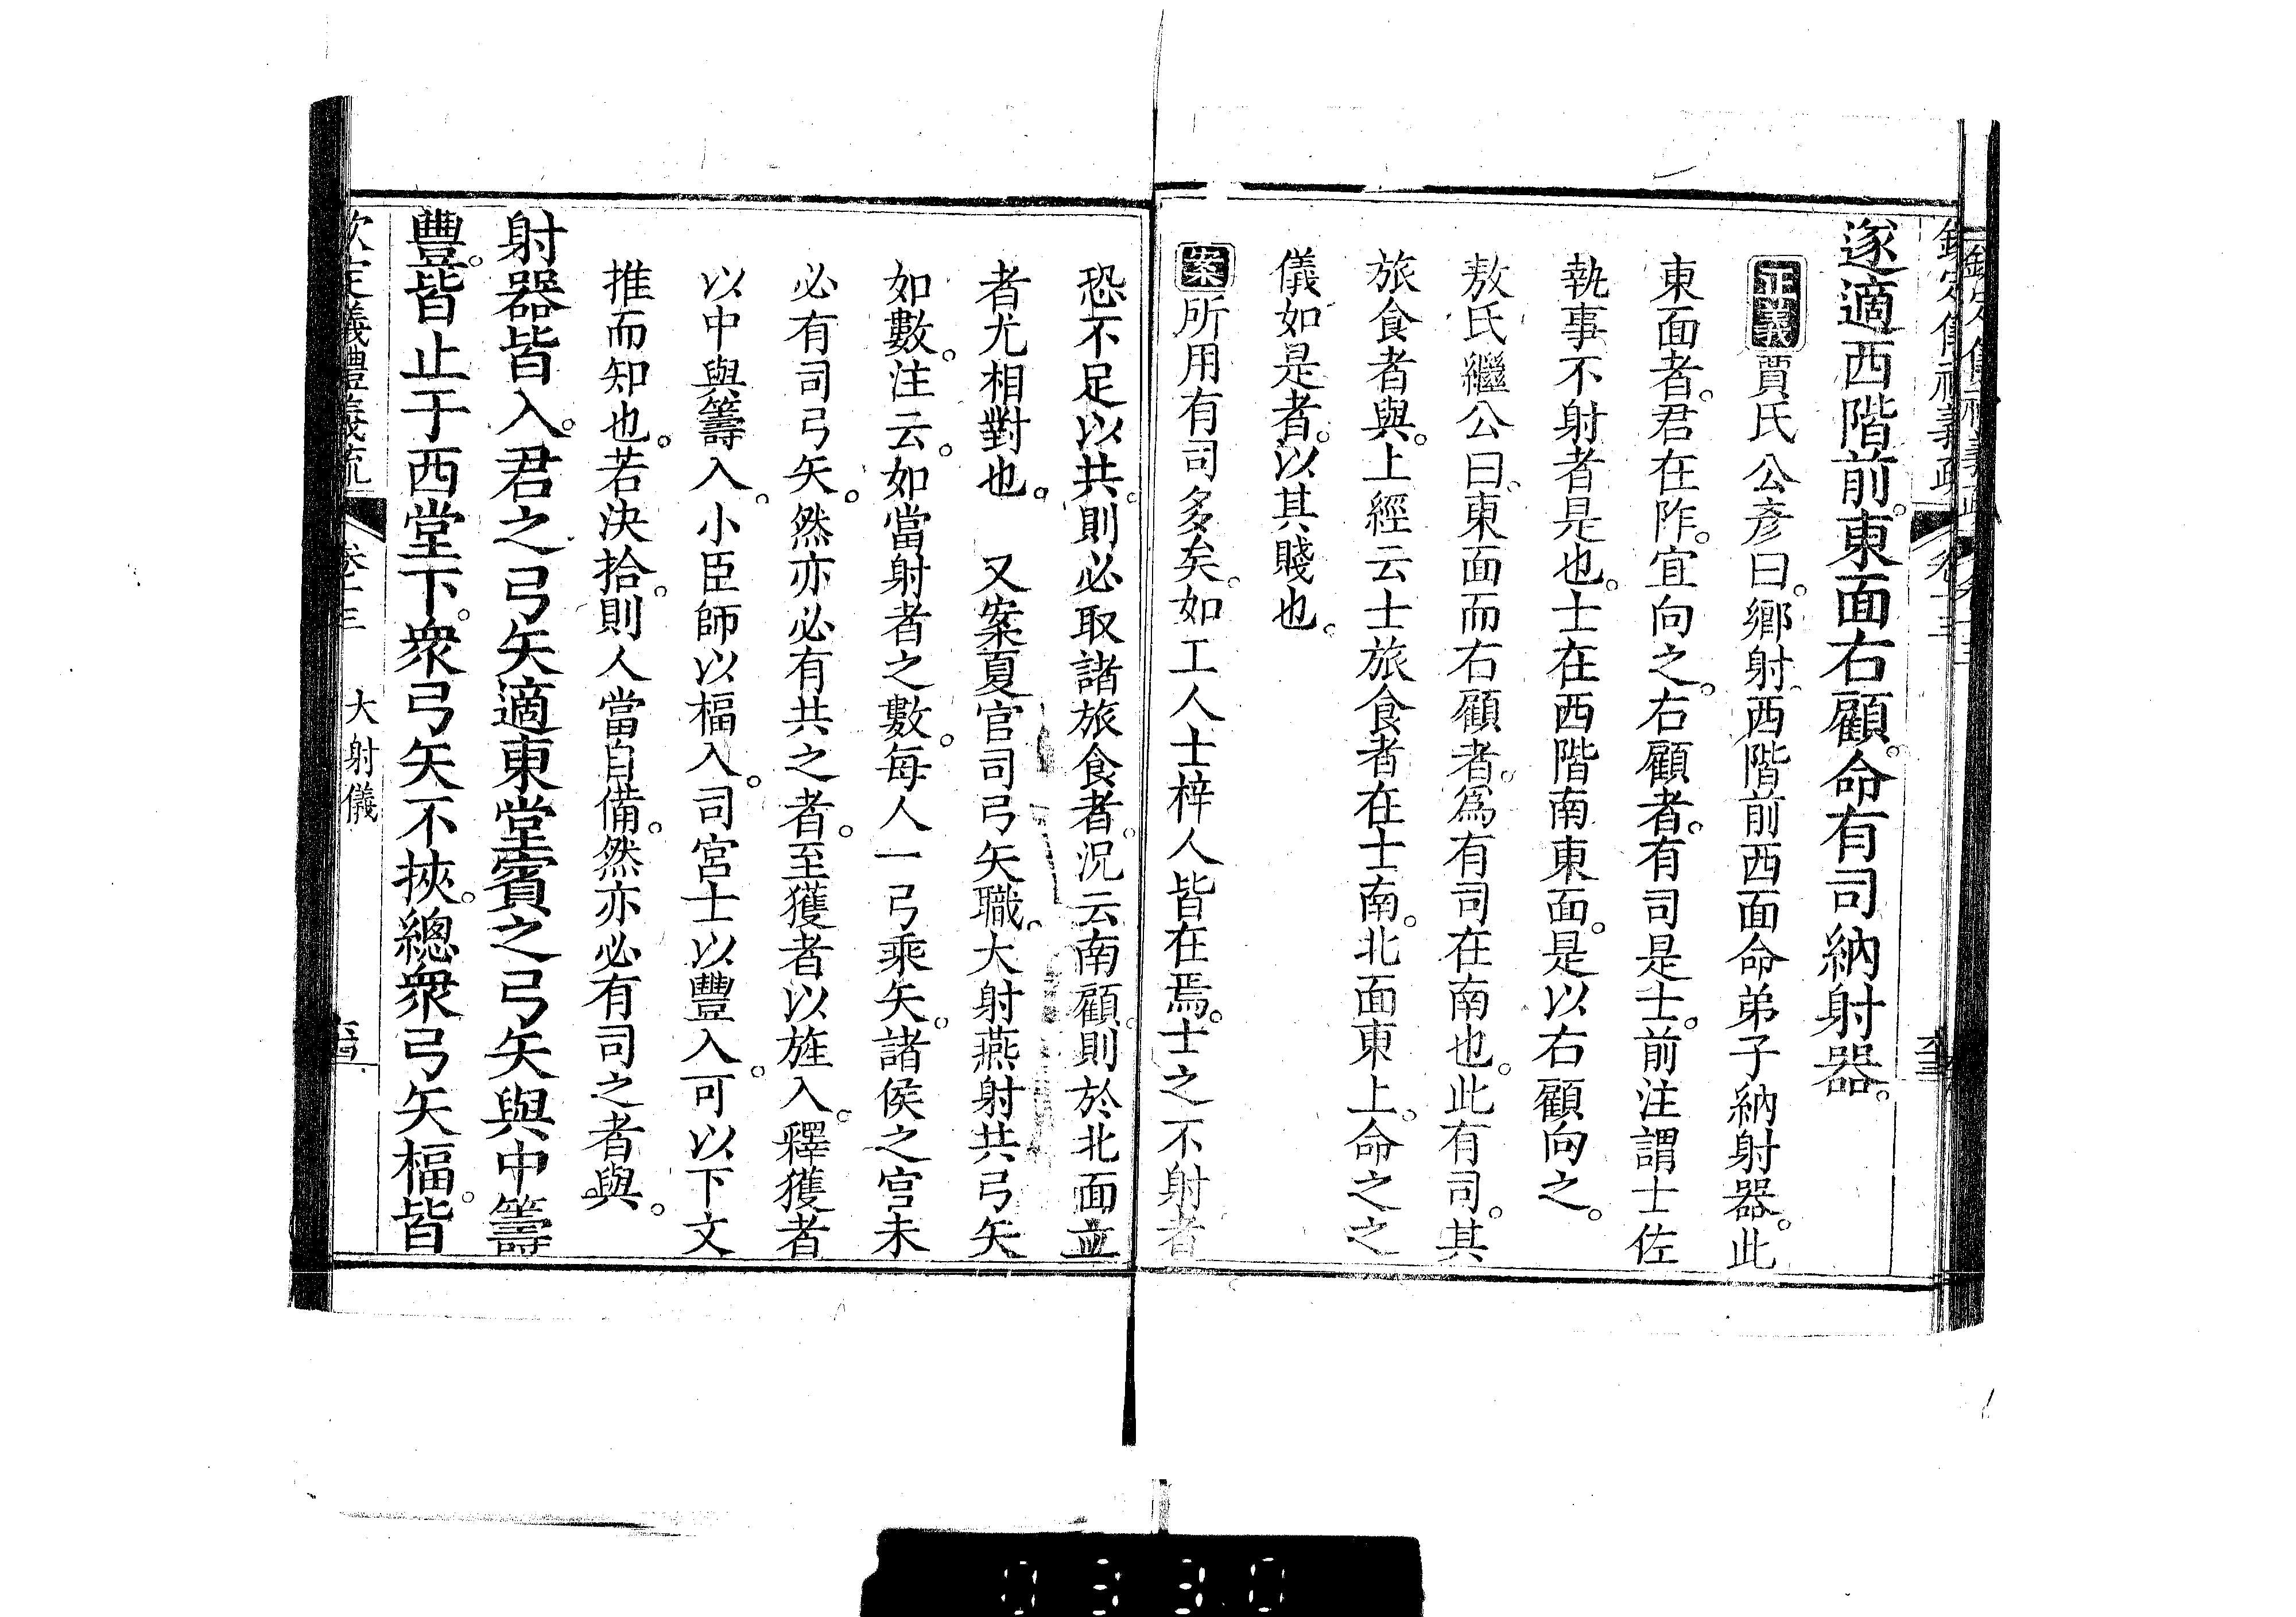 遂適西階前。東面右顧。命有司納射器。
正義賈氏公彥曰。鄉射。西階前西面命弟子納射器。此
東面者。君在阼。宜向之。右顧者。有司是士。前注謂士佐
執事不射者是也。士在西階南東面。是以右顧向之。
敖氏繼公曰。東面而右顧者。爲有司在南也。此有司。其
旅食者與。上經云士旅食者在士南。北面東上。命之之
儀如是者。以其賤也。
案所用有司多矣。如工人士梓人皆在焉。士之不射者
恐不足以共。則必取諸旅食者。況云南顧。則於北面並
者尤相對也。　又案夏官司弓矢職。大射燕射共弓矢
如數。注云。如當射者之數。每人一弓乘矢。諸侯之官未
必有司弓矢。然亦必有共之者。至獲者以旌入。釋獲者
以中與籌入。小臣師以楅入。司宮士以豐入。可以下文
推而知也。若決拾。則人當自備。然亦必有司之者與。
射器皆入。君之弓矢適東堂。賓之弓矢與中籌
豐。皆止于西堂下。衆弓矢不挾。總衆弓矢楅。皆
欽定儀禮義疏　卷十三　大射儀
0330